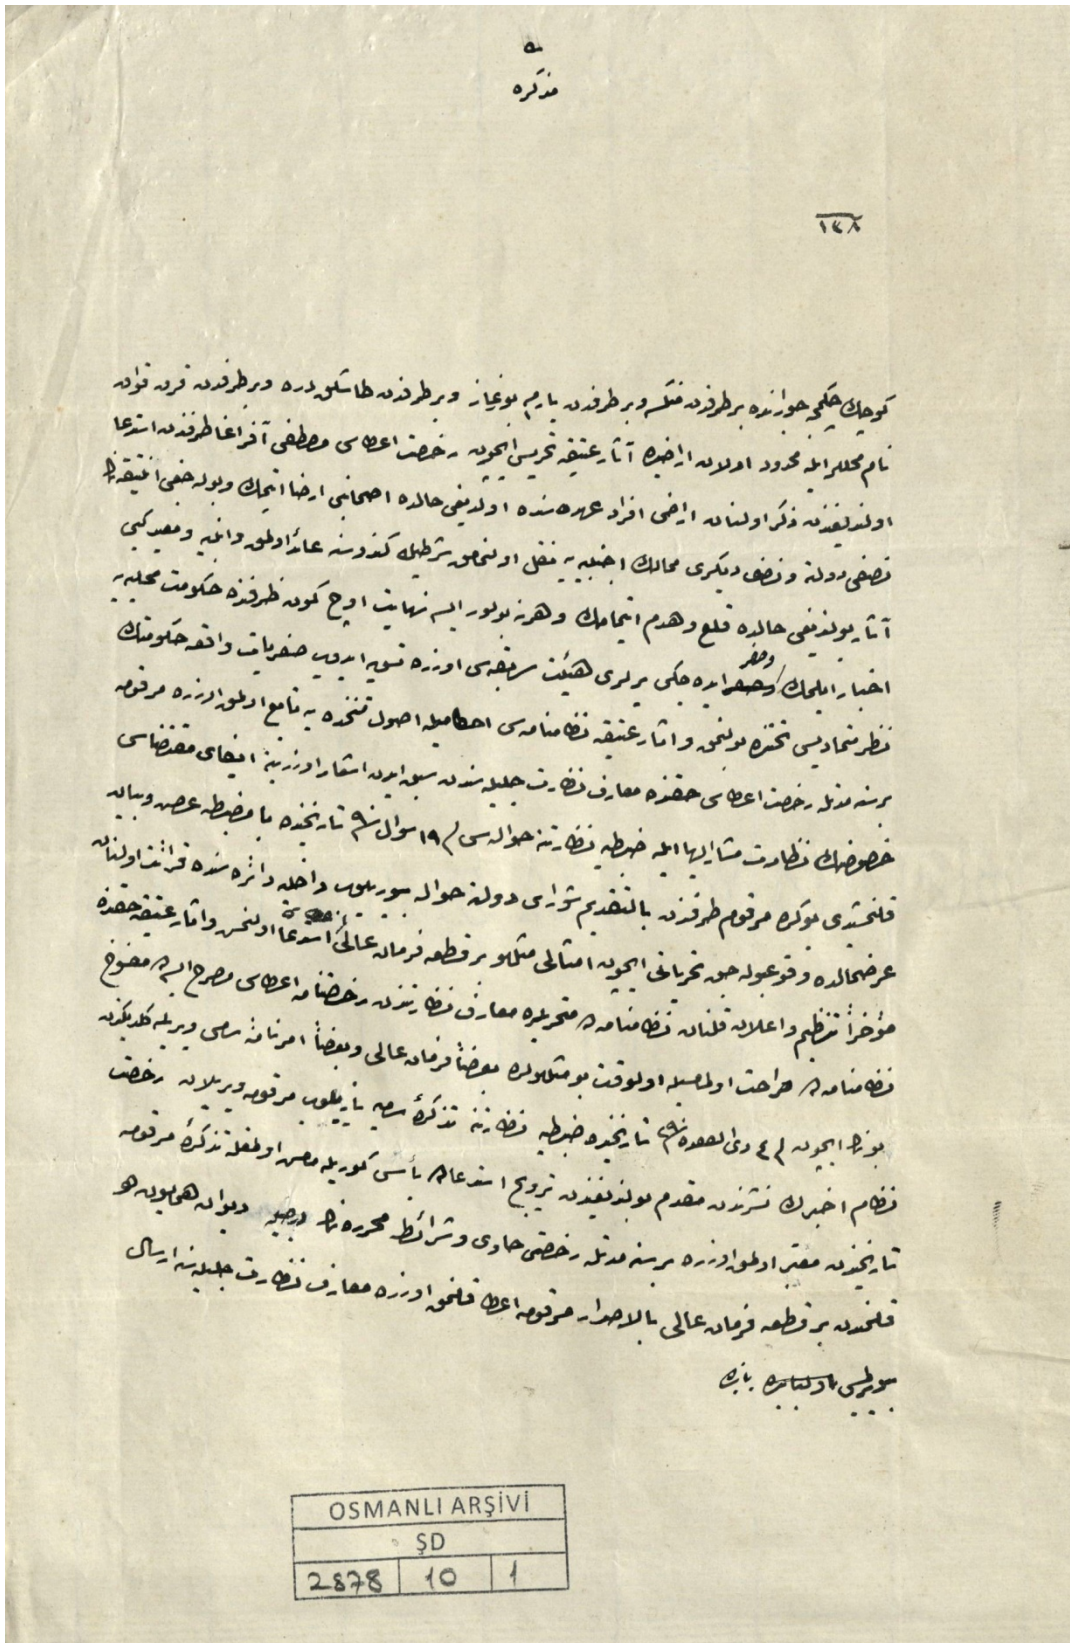 مذكره
١٣٨
كوچك چكمجه جوارنده بر طرفدن فنكسه وبر طرفدن يارم بوغاز وبر طرفدن طاشلق دره وبر طرفدن قرق قوان
نام محللر ايله محدود اولان اراضيده آثار عتيقه تحريسى ايچون رخصت اعطاسى مصطفى آغا طرفندن استدعا
اولنديغندن ذكر اولنان اراضى افراد عهده سنده اولديغى حالده اصحابنى ارضا ايتمك وبوله جغى انتيقه نك
نصفى دولته ونصف ديكرى ممالك اجنبيه يه نقل اولنمامق شرطيله كندوسنه عائد اولمق وابنيه ومعبد كبى
آثار بولنديغى حالده قلع وهدم ايتمامك وهر نه بولور ايسه نهايت اوچ كون ظرفنده حكومت محليه يه
اخبار ايلمك وحفر ايده جكى يرلرى هيئت سابقه سى اوزره تسويه ايدوب حفريات واقعه حكومتك
نظر متماديسى تحتنده بولنمق واثار عتيقه نظامنامه سى احكاميله اصول متخذه يه تابع اولمق اوزره مرقومه
بر سنه مدتله رخصت اعطاسى حقنده معارف نظارت جليله سندن سبق ايدن اشعار اوزرينه ايفاى مقتضاسى
خصوصنك نظارت مشار اليها ايله ضبطيه نظارتنه حواله سى فى ١٩ شوال سنه ٩١ تاريخنده با مضبطه عرض وبيان
قلنمشيدى بو كره مرقوم طرفندن بالتقديم شوراى دولته حواله بيوريلوب داخليه دائره سنده قرائت اولنان
عرضحالده وقوعبوله جق تحرياتى ايچون امثالى مثللو بر قطعه فرمان عالى استدعا اولنمش واثار عتيقه حقنده
مؤخراً تنظيم واعلان قلنان نظامنامه ده متحريلره معارف نظارتندن رخصتنامه اعطاسى مصرح ايسه ده مفسوخ
نظامنامه ده صراحت اولمامسيله اولوقت بو مثللولره بعضاً فرمان عالى وبعضاً امرنامه سامى ويريله كلديكندن
بونك ايچون فى ٤ ذى القعده سنه ٩١ تاريخنده ضبطيه نظارتنه تذكرهٔ ساميه يازيلوب مرقومه ويريلان رخصت
نظام اخيرك نشرندن مقدم بولنديغندن ترويج استدعاده بأس كوريله مامش اولمغله تذكرهٔ مرقومه
تاريخندن معتبر اولمق اوزره بر سنه مدتله رخصتى حاوى وشرائط محرره نك درجيله ديوان همايوندن
بر قطعه فرمان عالى بالاصدار مرقومه اعطا قلنمق اوزره معارف نظارت جليله سنه ارسالى
بابنده
OSMANLI ARŞİVİ
ŞD
2878 10 1